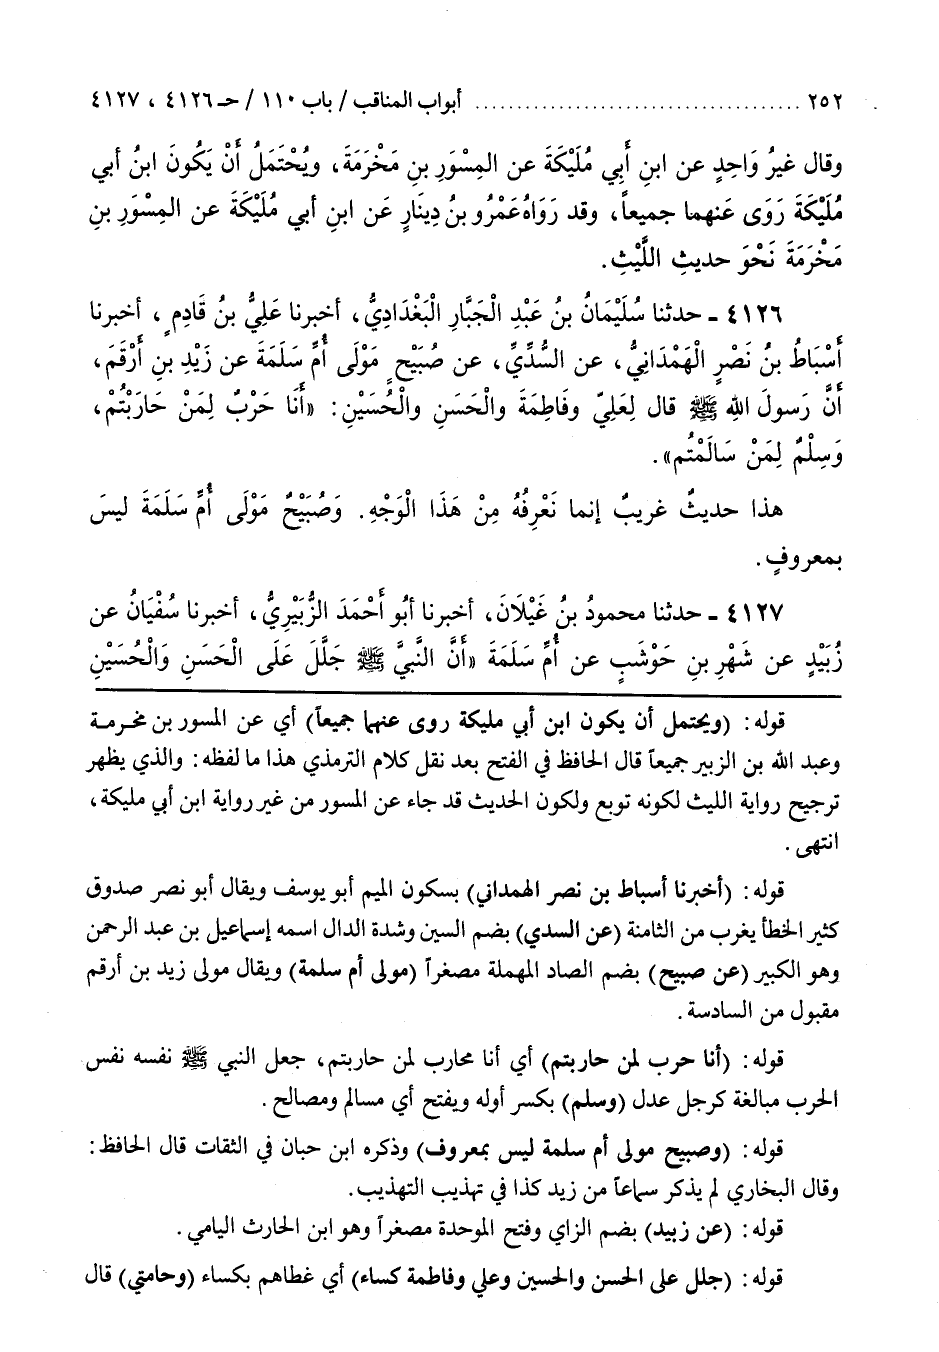 ٢٥٢ ...................................... أبواب المناقب / باب ١١٠ / حـ ٤١٢٦ ، ٤١٢٧
وقال غيرُ وَاحِدٍ عن ابنِ أَبِي مُلَيْكَةَ عن المِسْوَرِ بنِ مَخْرَمَةَ، ويُحْتَمَلُ أَنْ يَكُونَ ابنُ أبي
مُلَيْكَةَ رَوَى عَنهما جميعاً، وقد رَوَاهُ عَمْرُو بنُ دِينَارٍ عَن ابنِ أبي مُلَيْكَةَ عن المِسْوَرِ بنِ
مَخْرَمَةَ نَحْوَ حديثِ اللَّيْثِ.
٤١٢٦ ـ حدثنا سُلَيْمَانُ بنُ عَبْدِ الْجَبَّارِ الْبَغْدَادِيُّ، أخبرنا عَلِيُّ بنُ قَادِمٍ، أخبرنا
أَسْبَاطُ بنُ نَصْرٍ الْهَمْدَانِيُّ، عن السُّدِّيِّ، عن صُبَيْحٍ مَوْلَى أُمِّ سَلَمَةَ عن زَيْدِ بنِ أَرْقَمَ،
أنَّ رَسولَ اللهِ ﷺ قال لِعَلِيٍّ وفَاطِمَةَ والْحَسَنِ والْحُسَيْنِ: «أَنَا حَرْبٌ لِمَنْ حَارَبْتُمْ،
وَسِلْمٌ لِمَنْ سَالَمْتُم».
هذا حديثٌ غريبٌ إنما نَعْرِفُهُ مِنْ هَذَا الْوَجْهِ. وَصُبَيْحٌ مَوْلَى أُمِّ سَلَمَةَ ليسَ
بمعروفٍ.
٤١٢٧ ـ حدثنا محمودُ بنُ غَيْلَانَ، أخبرنا أبُو أَحْمَدَ الزُّبَيْرِيُّ، أخبرنا سُفْيَانُ عن
زُبَيْدٍ عن شَهْرِ بنِ حَوْشَبٍ عن أُمِّ سَلَمَةَ «أَنَّ النَّبِيَّ ﷺ جَلَّلَ عَلَى الْحَسَنِ وَالْحُسَيْنِ
قوله: (ويحتمل أن يكون ابن أبي مليكة روى عنهما جميعاً) أي عن المسور بن مخرمة
وعبد الله بن الزبير جميعاً قال الحافظ في الفتح بعد نقل كلام الترمذي هذا ما لفظه: والذي يظهر
ترجيح رواية الليث لكونه توبع ولكون الحديث قد جاء عن المسور من غير رواية ابن أبي مليكة،
انتهى.
قوله: (أخبرنا أسباط بن نصر الهمداني) بسكون الميم أبو يوسف ويقال أبو نصر صدوق
كثير الخطأ يغرب من الثامنة (عن السدي) بضم السين وشدة الدال اسمه إسماعيل بن عبد الرحمن
وهو الكبير (عن صبيح) بضم الصاد المهملة مصغراً (مولى أم سلمة) ويقال مولى زيد بن أرقم
مقبول من السادسة.
قوله: (أنا حرب لمن حاربتم) أي أنا محارب لمن حاربتم، جعل النبي ﷺ نفسه نفس
الحرب مبالغة كرجل عدل (وسلم) بكسر أوله ويفتح أي مسالم ومصالح.
قوله: (وصبيح مولى أم سلمة ليس بمعروف) وذكره ابن حبان في الثقات قال الحافظ:
وقال البخاري لم يذكر سماعاً من زيد كذا في تهذيب التهذيب.
قوله: (عن زبيد) بضم الزاي وفتح الموحدة مصغراً وهو ابن الحارث اليامي.
قوله: (جلل على الحسن والحسين وعلي وفاطمة كساء) أي غطاهم بكساء (وحامتي) قال